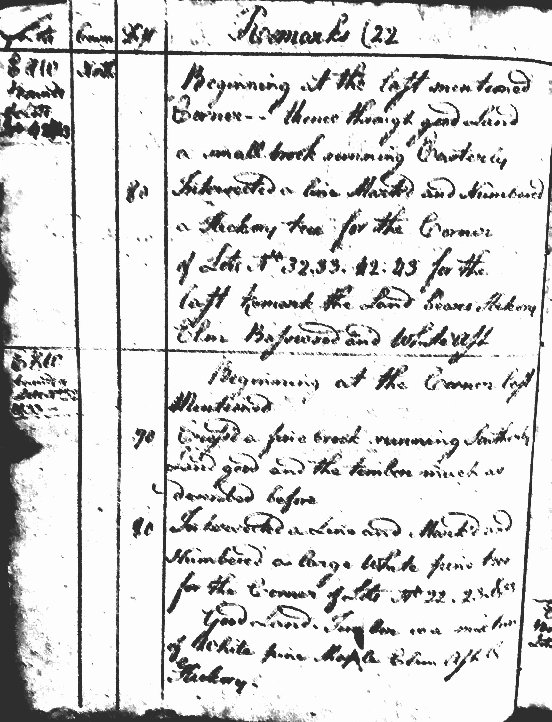 Remarks (22
Course
North
Beginning at the last mentioned
Corner -- thence through good Land
a small brook running Easterly
80 Intersected a line Mark'd and Numbered
a Hickory tree for the Corner
of Lots No 32.33.42.43 for the
last remark the Land bears Hickory
Elm Basswood and White Ash
E & W
Beginning at the Corner last
Mentioned
70 Cross'd a fine brook running Southerly
Land good and the timber much as
described before
80 Intersected a Line and Mark'd and
Numbered a large White pine tree
for the Corner of Lots No 22.23.
Good Land. Timber is a mixture
of White pine Maple Elm Ash &
Hickory.